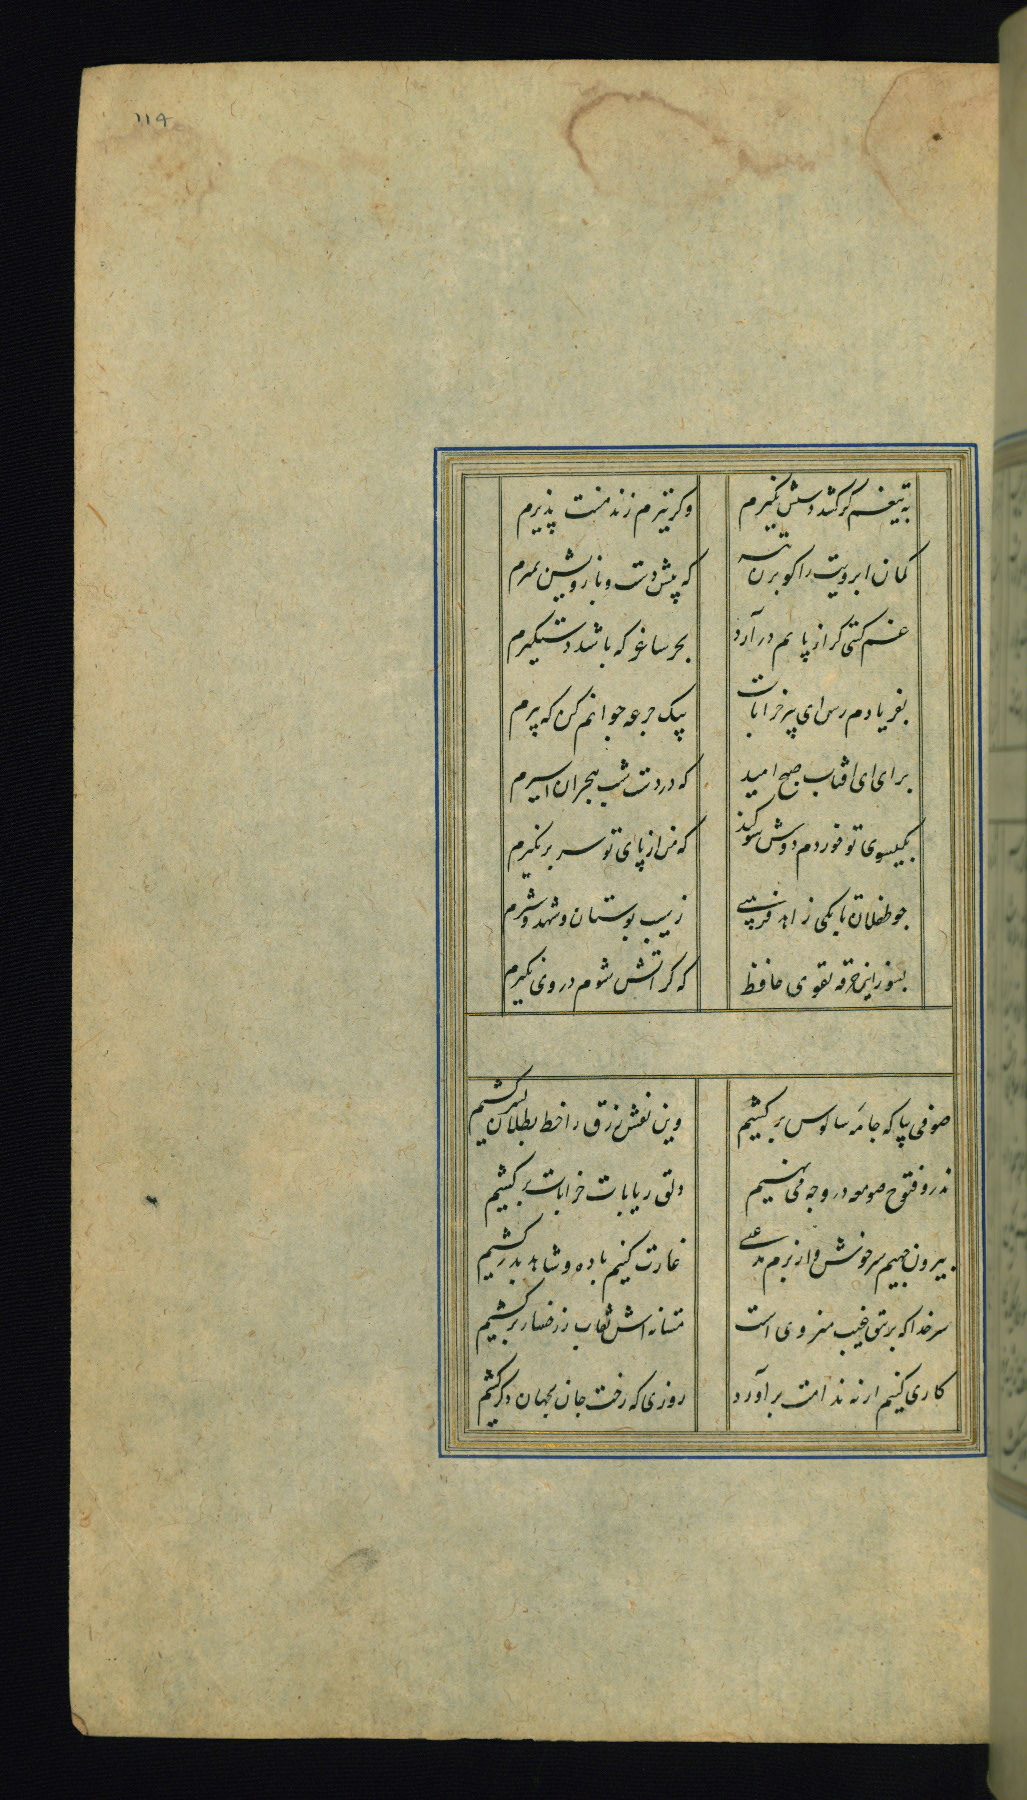 ۱۱۹
به تیغم گر کشد دستش نگیرم وگر تیرم زند منت پذیرم
کمان ابرویت را گو بزن تیر که پیش دست و بازویت بمیرم
غم گیتی گر از پایم در آرد بجز ساغر که باشد دستگیرم
بفریادم رس ای پیر خرابات بیک جرعه جوانم کن که پیرم
برای ای افتاب صبح امید که در دست شب هجران اسیرم
بگیسوی تو خوردم دوش سوگند که من از پای تو سر بر نگیرم
چو طفلان تا بکی زاهد فریبی ز سیب بوستان و شهد و شیرم
بسوز این خرقه تقوی حافظ که گر اتش شوم در وی نگیرم
صوفی بیا که جامهٔ سالوس برکشیم وین نقش زرق را خط بطلان بسر کشیم
نذر و فتوح صومعه در وجه می نهیم دلق ریا بآب خرابات برکشیم
بیرون جهیم سرخوش و از بزم مدعی غارت کنیم باده و شاهد ببر کشیم
سر خدا که در تتق غیب منزوی است مستانه‌اش نقاب ز رخسار برکشیم
کاری کنیم ار نه ندامت برآورد روزی که رخت جان بجهان دگر کشیم